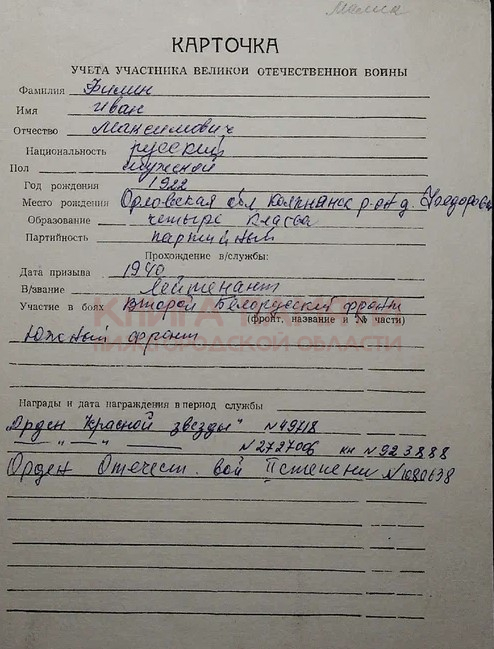 Мелик
КАРТОЧКА
УЧЕТА УЧАСТНИКА ВЕЛИКОЙ ОТЕЧЕСТВЕННОЙ ВОЙНЫ
Фамилия Филин
Имя Иван
Отчество Максимович
Национальность русский
Пол мужской
Год рождения 1922
Место рождения Орловская обл р-он д.
Образование четыре класса
Партийность партийный
Прохождение в/службы:
Дата призыва 1940
В/звание Лейтенант
Участие в боях Второй Белорусский фронт
(фронт, название и № части)
КНИГА ПАМЯТИ
НИЖЕГОРОДСКОЙ ОБЛАСТИ
Южный фронт
Награды и дата награждения в период службы
"Орден Красной звезды" N 49418
— " — " — N 2727006 кн N 923888
Орден Отечест. вой II степени N 1080638